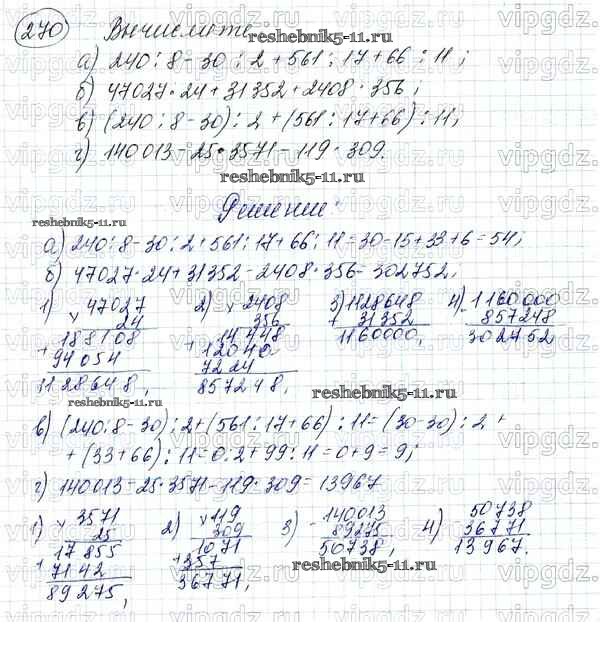 270 Вычислите
reshebnik5-11.ru
а) 240 : 8 - 30 : 2 + 561 : 17 + 66 : 11;
б) 47027 · 24 + 31352 - 2408 · 356;
в) (240 : 8 - 30) : 2 + (561 : 17 + 66) : 11;
г) 140013 - 25 · 3571 - 119 · 309.
reshebnik5-11.ru
Решение:
reshebnik5-11.ru
а) 240 : 8 - 30 : 2 + 561 : 17 + 66 : 11 = 30 - 15 + 33 + 6 = 54;
б) 47027 · 24 + 31352 - 2408 · 356 = 302752;
1) × 47027
24
188108
+ 94054
1128648,
2) × 2408
356
14448
+ 12040
7224
857248,
3) 1128648
+ 31352
1160000,
4) 1160000
- 857248
302752
reshebnik5-11.ru
в) (240 : 8 - 30) : 2 + (561 : 17 + 66) : 11 = (30 - 30) : 2 +
+ (33 + 66) : 11 = 0 : 2 + 99 : 11 = 0 + 9 = 9;
г) 140013 - 25 · 3571 - 119 · 309 = 13967
1) × 3571
25
17855
+ 7142
89275,
2) × 119
309
1071
+ 357
36771,
3) - 140013
89275
50738,
4) - 50738
36771
13967.
reshebnik5-11.ru
vipgdz.